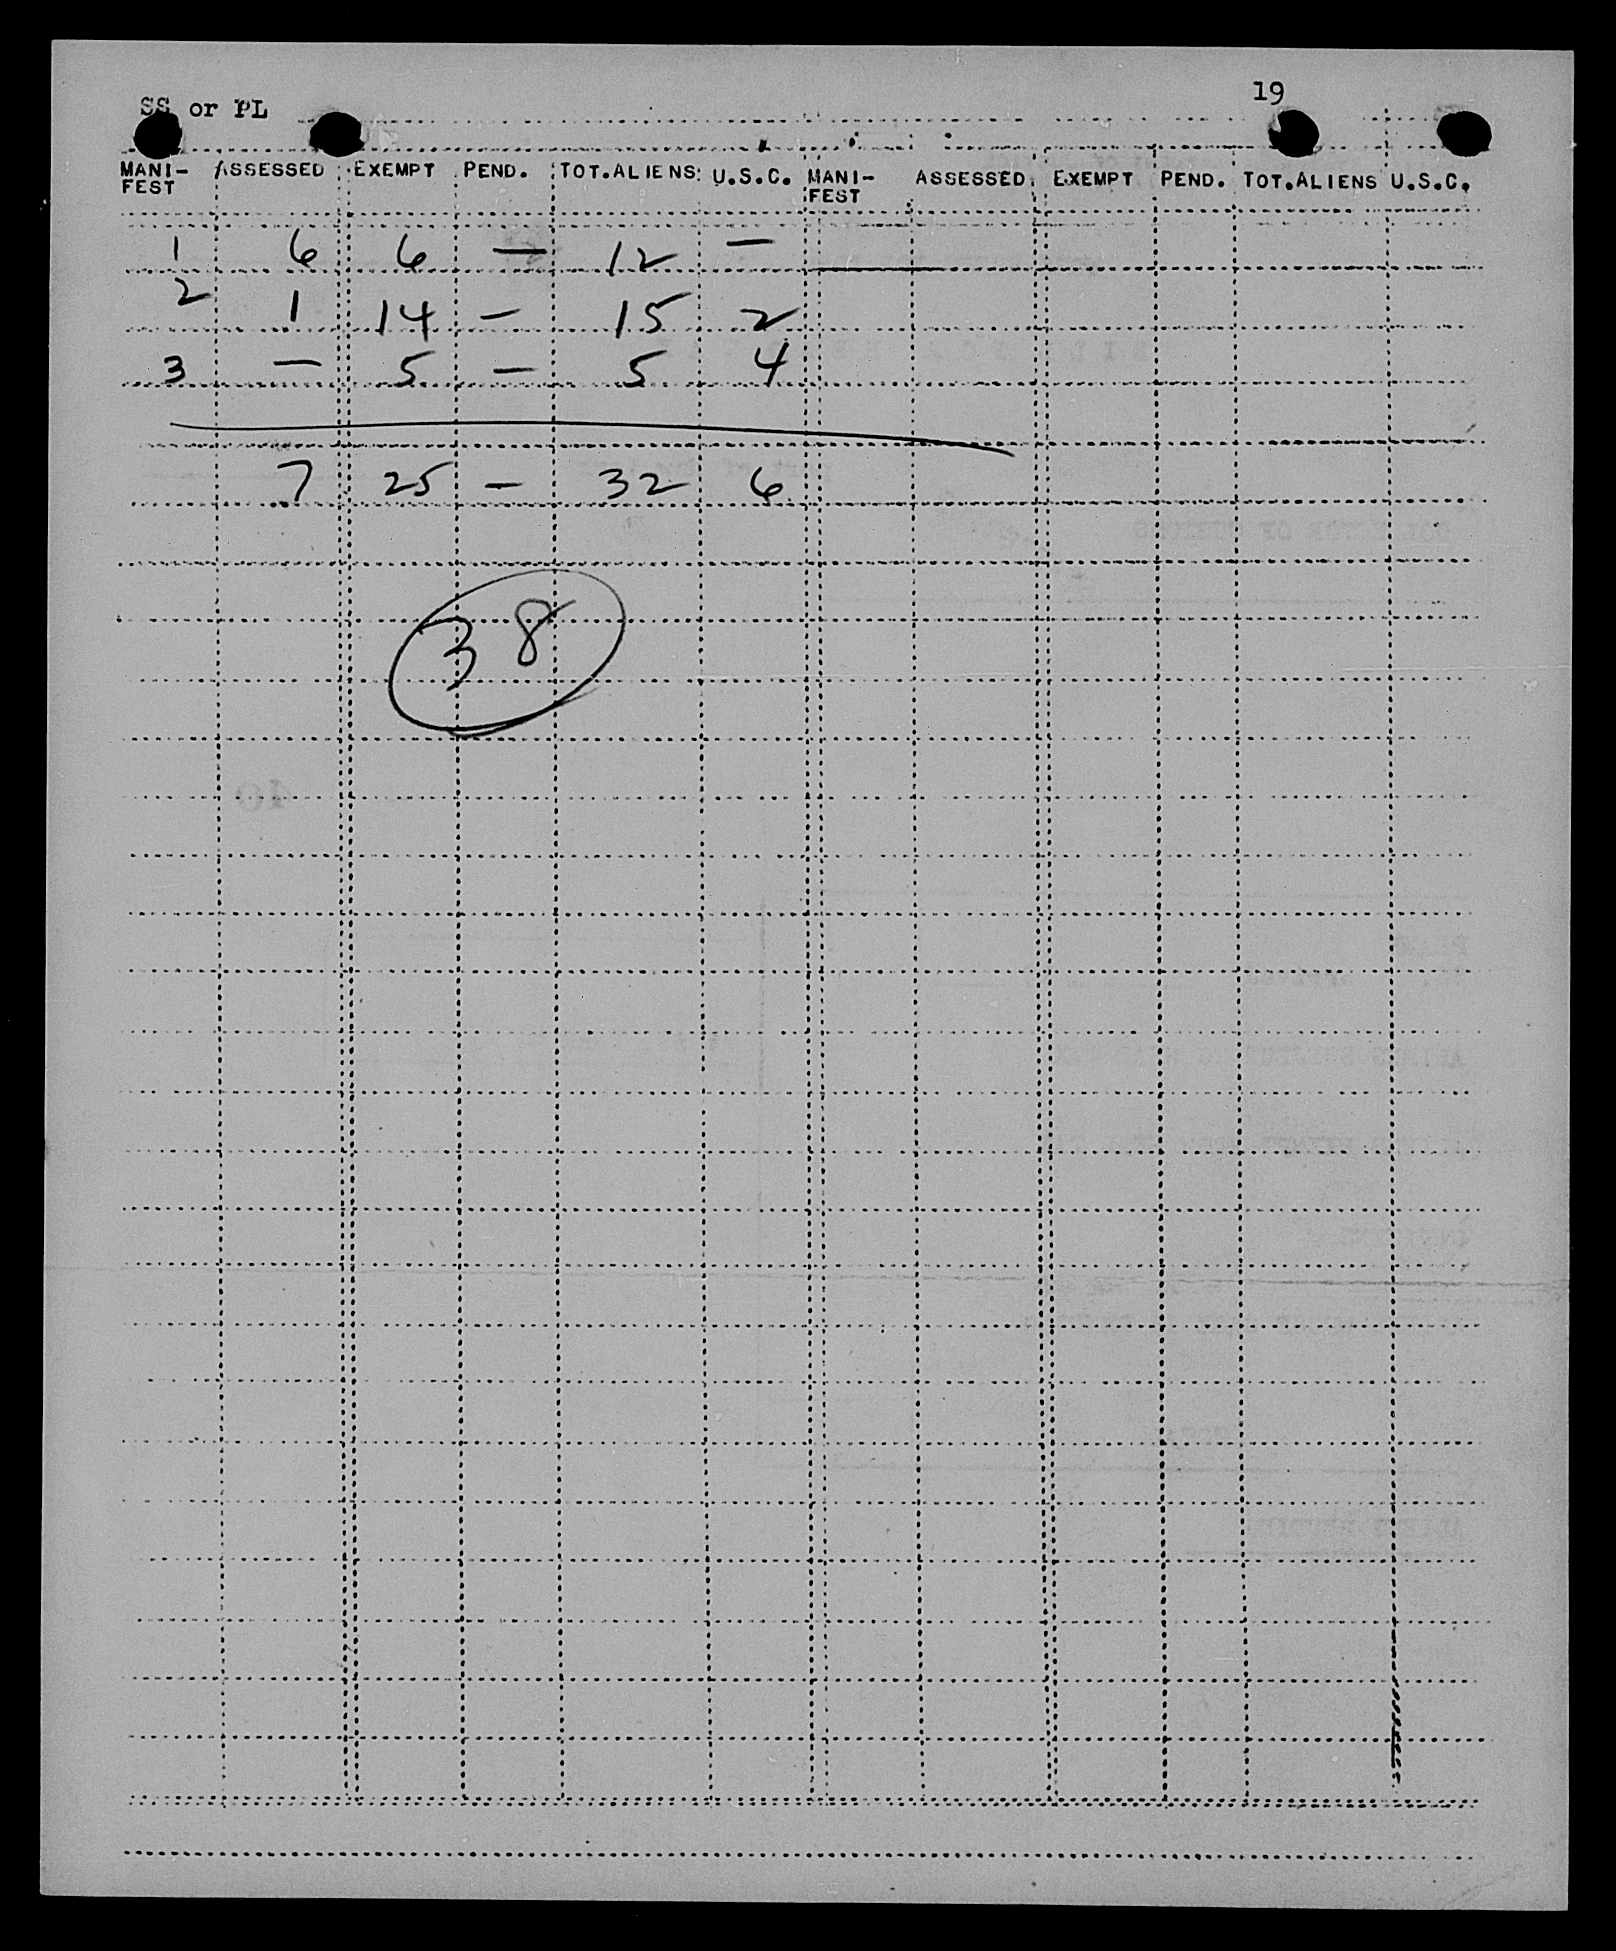 19
SS or PL
MANI-FEST ASSESSED EXEMPT PEND. TOT.ALIENS U.S.C. MANI-FEST ASSESSED EXEMPT PEND. TOT.ALIENS U.S.C.
1 6 6 — 12 —
2 1 14 — 15 2
3 — 5 — 5 4
7 25 — 32 6
38